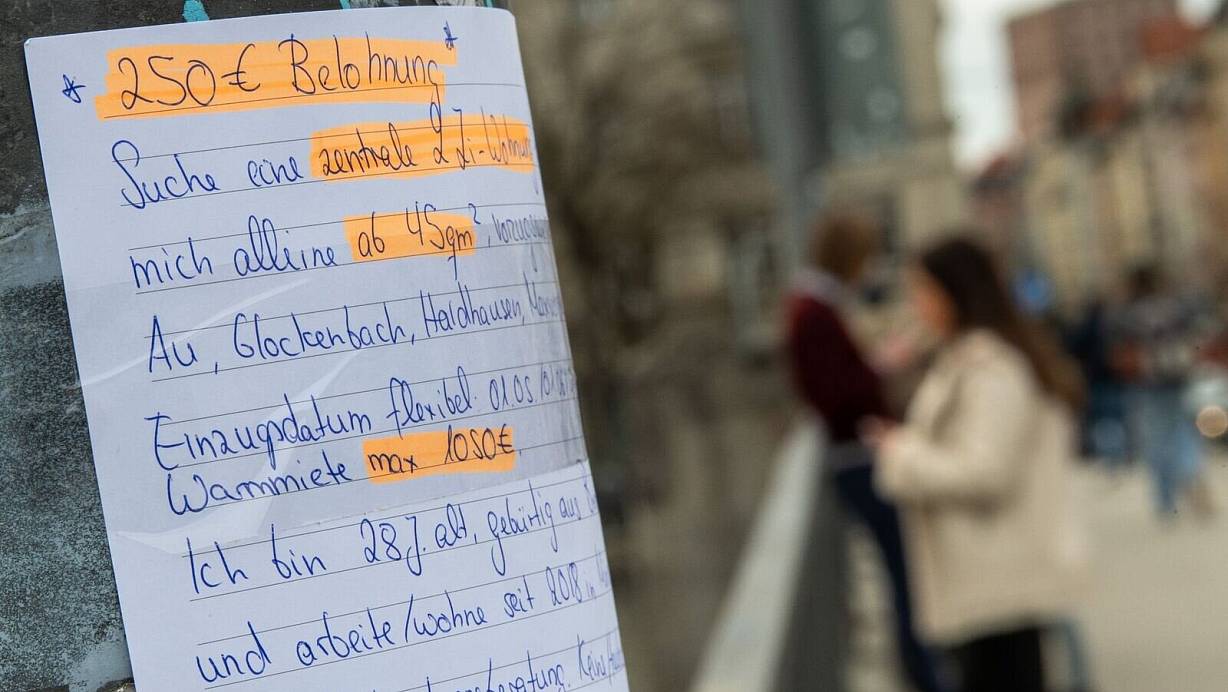 * 250€ Belohnung *
Suche eine zentrale 2 Zi-Wohnung
mich alleine ab 45qm²,
Au, Glockenbach, Haidhausen,
Einzugsdatum flexibel. 01.05./01.06
Warmmiete max 1050€.
Ich bin 28 J. alt, gebürtig aus
und arbeite/wohne seit 2018 in